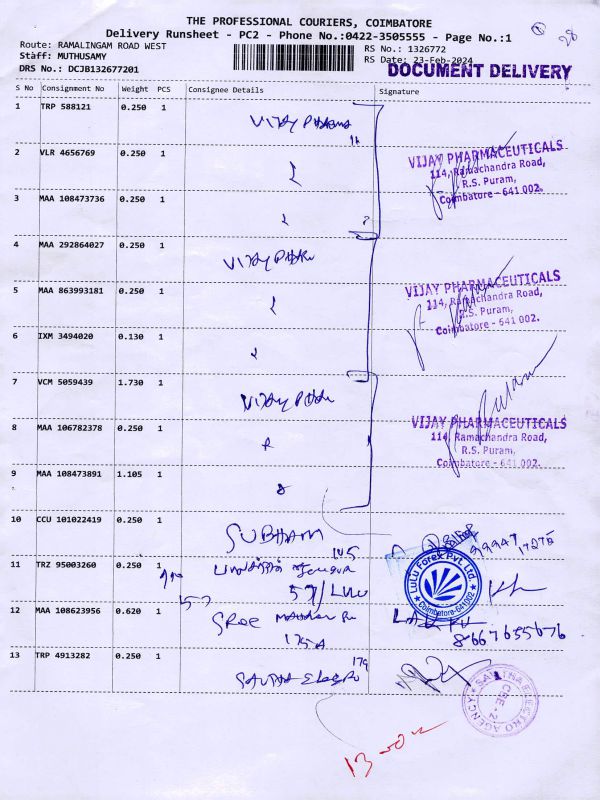 THE PROFESSIONAL COURIERS, COIMBATORE
Delivery Runsheet - PC2 - Phone No.:0422-3505555 - Page No.:1
28
Route: RAMALINGAM ROAD WEST
RS No.: 1326772
Staff: MUTHUSAMY
RS Date: 23-Feb-2024
DRS No.: DCJB132677201
DOCUMENT DELIVERY
S No Consignment No Weight PCS Consignee Details Signature
1 TRP 588121 0.250 1 VIJAY PHARMA
2 VLR 4656769 0.250 1
VIJAY PHARMACEUTICALS
114, Ramachandra Road,
R.S. Puram,
Coimbatore - 641 002.
3 MAA 108473736 0.250 1
4 MAA 292864027 0.250 1 VIJAY PHAR
5 MAA 863993181 0.250 1
VIJAY PHARMACEUTICALS
114, Ramachandra Road,
R.S. Puram,
Coimbatore - 641 002.
6 IXM 3494020 0.130 1
7 VCM 5059439 1.730 1 VIJAY PHAR
8 MAA 106782378 0.250 1
VIJAY PHARMACEUTICALS
114, Ramachandra Road,
R.S. Puram,
Coimbatore - 641 002.
9 MAA 108473891 1.105 1
10 CCU 101022419 0.250 1 SUBHAM
99947 17275
11 TRZ 95003260 0.250 1
57/ LULU
LuLu Forex Pvt. Ltd.
Coimbatore-641002
12 MAA 108623956 0.620 1 SREE
175A
8667635676
13 TRP 4913282 0.250 1
179
SAVITHA ELECTRO AGENCY
CBE - 2
13